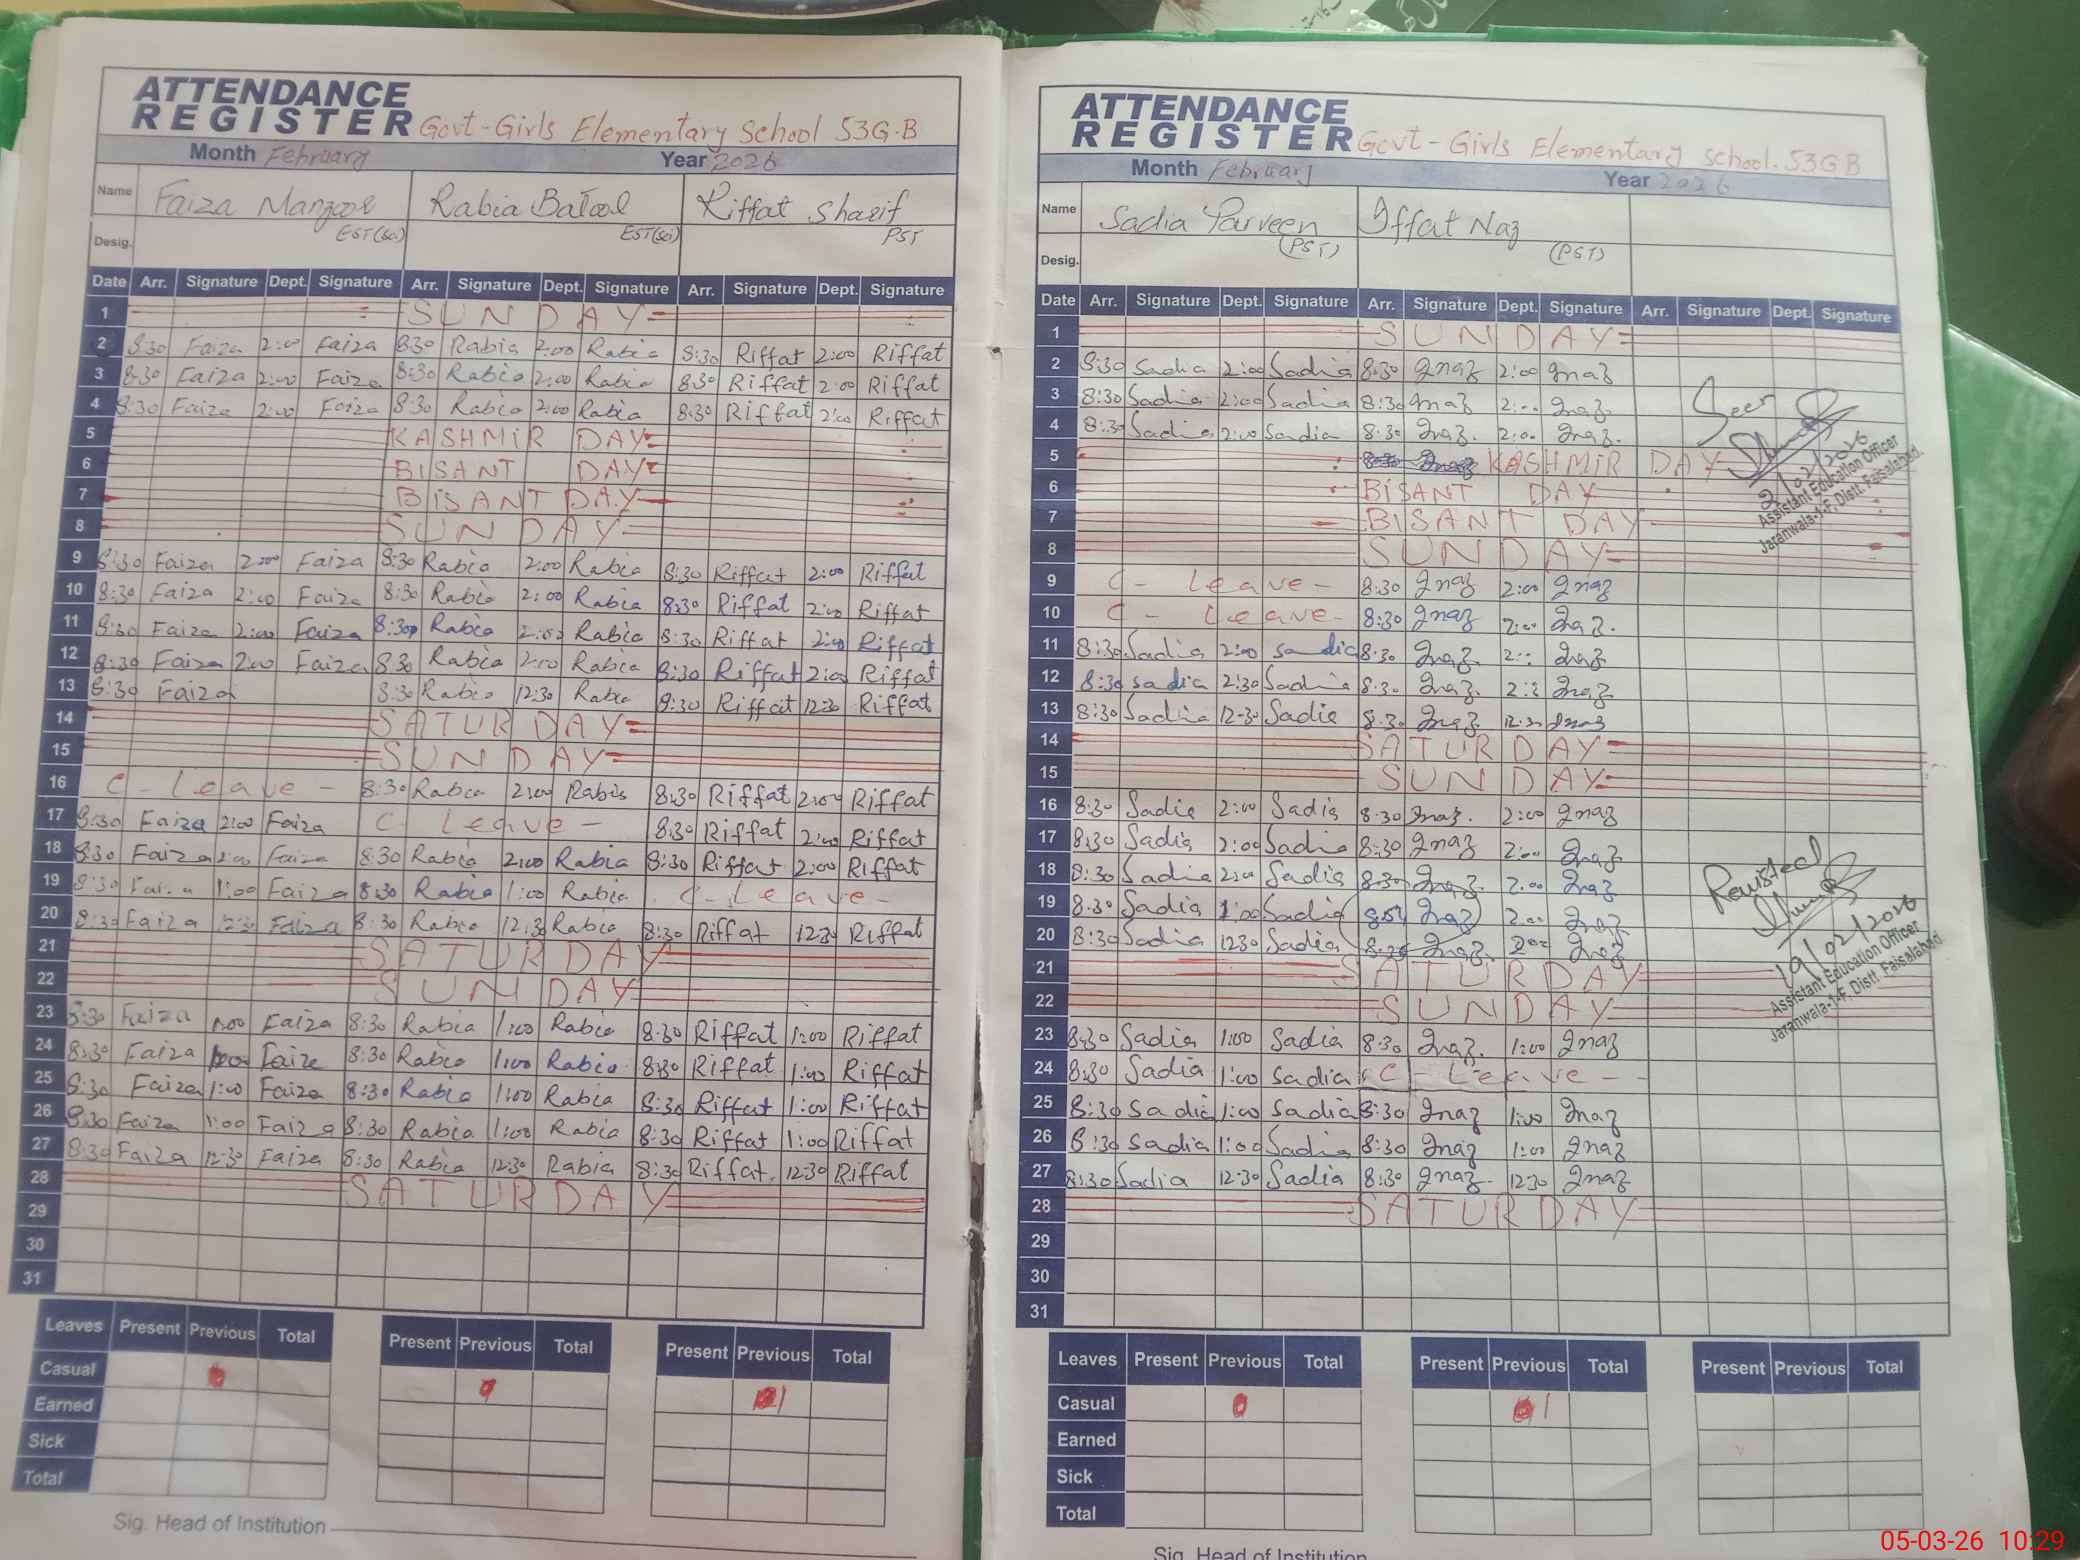 ATTENDANCE
REGISTER Govt-Girls Elementary School 53G.B
Month February Year 2026
Name Faiza Manzoor Rabia Batool Riffat Sharif
Desig. EST(sci) EST(sci) PST
Date Arr. Signature Dept. Signature Arr. Signature Dept. Signature Arr. Signature Dept. Signature
1 SUNDAY
2 8:30 Faiza 2:00 Faiza 8:30 Rabia 2:00 Rabia 8:30 Riffat 2:00 Riffat
3 8:30 Faiza 2:00 Faiza 8:30 Rabia 2:00 Rabia 8:30 Riffat 2:00 Riffat
4 8:30 Faiza 2:00 Faiza 8:30 Rabia 2:00 Rabia 8:30 Riffat 2:00 Riffat
5 KASHMIR DAY
6 BISANT DAY
7 BISANT DAY
8 SUNDAY
9 8:30 Faiza 2:00 Faiza 8:30 Rabia 2:00 Rabia 8:30 Riffat 2:00 Riffat
10 8:30 Faiza 2:00 Faiza 8:30 Rabia 2:00 Rabia 8:30 Riffat 2:00 Riffat
11 8:30 Faiza 2:00 Faiza 8:30 Rabia 2:00 Rabia 8:30 Riffat 2:00 Riffat
12 8:30 Faiza 2:00 Faiza 8:30 Rabia 2:00 Rabia 8:30 Riffat 2:00 Riffat
13 8:30 Faiza 8:30 Rabia 12:30 Rabia 8:30 Riffat 12:30 Riffat
14 SATURDAY
15 SUNDAY
16 C - Leave - 8:30 Rabia 2:00 Rabia 8:30 Riffat 2:00 Riffat
17 8:30 Faiza 2:00 Faiza C Leave - 8:30 Riffat 2:00 Riffat
18 8:30 Faiza 2:00 Faiza 8:30 Rabia 2:00 Rabia 8:30 Riffat 2:00 Riffat
19 8:30 Faiza 1:00 Faiza 8:30 Rabia 1:00 Rabia C - Leave -
20 8:30 Faiza 12:30 Faiza 8:30 Rabia 12:30 Rabia 8:30 Riffat 12:30 Riffat
21 SATURDAY
22 SUNDAY
23 8:30 Faiza 1:00 Faiza 8:30 Rabia 1:00 Rabia 8:30 Riffat 1:00 Riffat
24 8:30 Faiza 1:00 Faiza 8:30 Rabia 1:00 Rabia 8:30 Riffat 1:00 Riffat
25 8:30 Faiza 1:00 Faiza 8:30 Rabia 1:00 Rabia 8:30 Riffat 1:00 Riffat
26 8:30 Faiza 1:00 Faiza 8:30 Rabia 1:00 Rabia 8:30 Riffat 1:00 Riffat
27 8:30 Faiza 12:30 Faiza 8:30 Rabia 12:30 Rabia 8:30 Riffat 12:30 Riffat
28 SATURDAY
29
30
31
Leaves Present Previous Total Present Previous Total Present Previous Total
Casual 1
Earned
Sick
Total
Sig. Head of Institution
ATTENDANCE
REGISTER Govt-Girls Elementary School. 53GB
Month February Year 2026
Name Sadia Parveen Iffat Naz
Desig. (PST) (PST)
Date Arr. Signature Dept. Signature Arr. Signature Dept. Signature Arr. Signature Dept. Signature
1 SUNDAY
2 8:30 Sadia 2:00 Sadia 8:30 Inaz 2:00 Inaz
3 8:30 Sadia 2:00 Sadia 8:30 Inaz 2:00 Inaz
4 8:30 Sadia 2:00 Sadia 8:30 Inaz. 2:00 Inaz.
Seen
5 KASHMIR DAY
2/02/2026
Assistant Education Officer
Jaranwala-1-F, Distt. Faisalabad.
6 BISANT DAY
7 BISANT DAY
8 SUNDAY
9 C - Leave - 8:30 Inaz 2:00 Inaz
10 C - Leave - 8:30 Inaz 2:00 Inaz.
11 8:30 Sadia 2:00 Sadia 8:30 Inaz 2:00 Inaz
12 8:30 Sadia 2:30 Sadia 8:30 Inaz. Inaz
13 8:30 Sadia 12:30 Sadia 8:30 Inaz 12:30 Inaz
14 SATURDAY
15 SUNDAY
16 8:30 Sadia 2:00 Sadia 8:30 Inaz. 2:00 Inaz
17 8:30 Sadia 2:00 Sadia 8:30 Inaz 2:00 Inaz
18 8:30 Sadia 2:00 Sadia 8:30 Inaz. 2:00 Inaz
19 8:30 Sadia 1:00 Sadia Inaz 2:00 Inaz
20 8:30 Sadia 12:30 Sadia 8:30 Inaz. 2:00 Inaz
19/02/2026
Assistant Education Officer
Jaranwala-1-F, Distt. Faisalabad.
21 SATURDAY
22 SUNDAY
23 8:30 Sadia 1:00 Sadia 8:30 Inaz. 1:00 Inaz
24 8:30 Sadia 1:00 Sadia C - Leave -
25 8:30 Sadia 1:00 Sadia 8:30 Inaz 1:00 Inaz
26 8:30 Sadia 1:00 Sadia 8:30 Inaz 1:00 Inaz
27 8:30 Sadia 12:30 Sadia 8:30 Inaz. 12:30 Inaz
28 SATURDAY
29
30
31
Leaves Present Previous Total Present Previous Total Present Previous Total
Casual 0 1
Earned
Sick
Total
Sig. Head of Institution
05-03-26 10:29